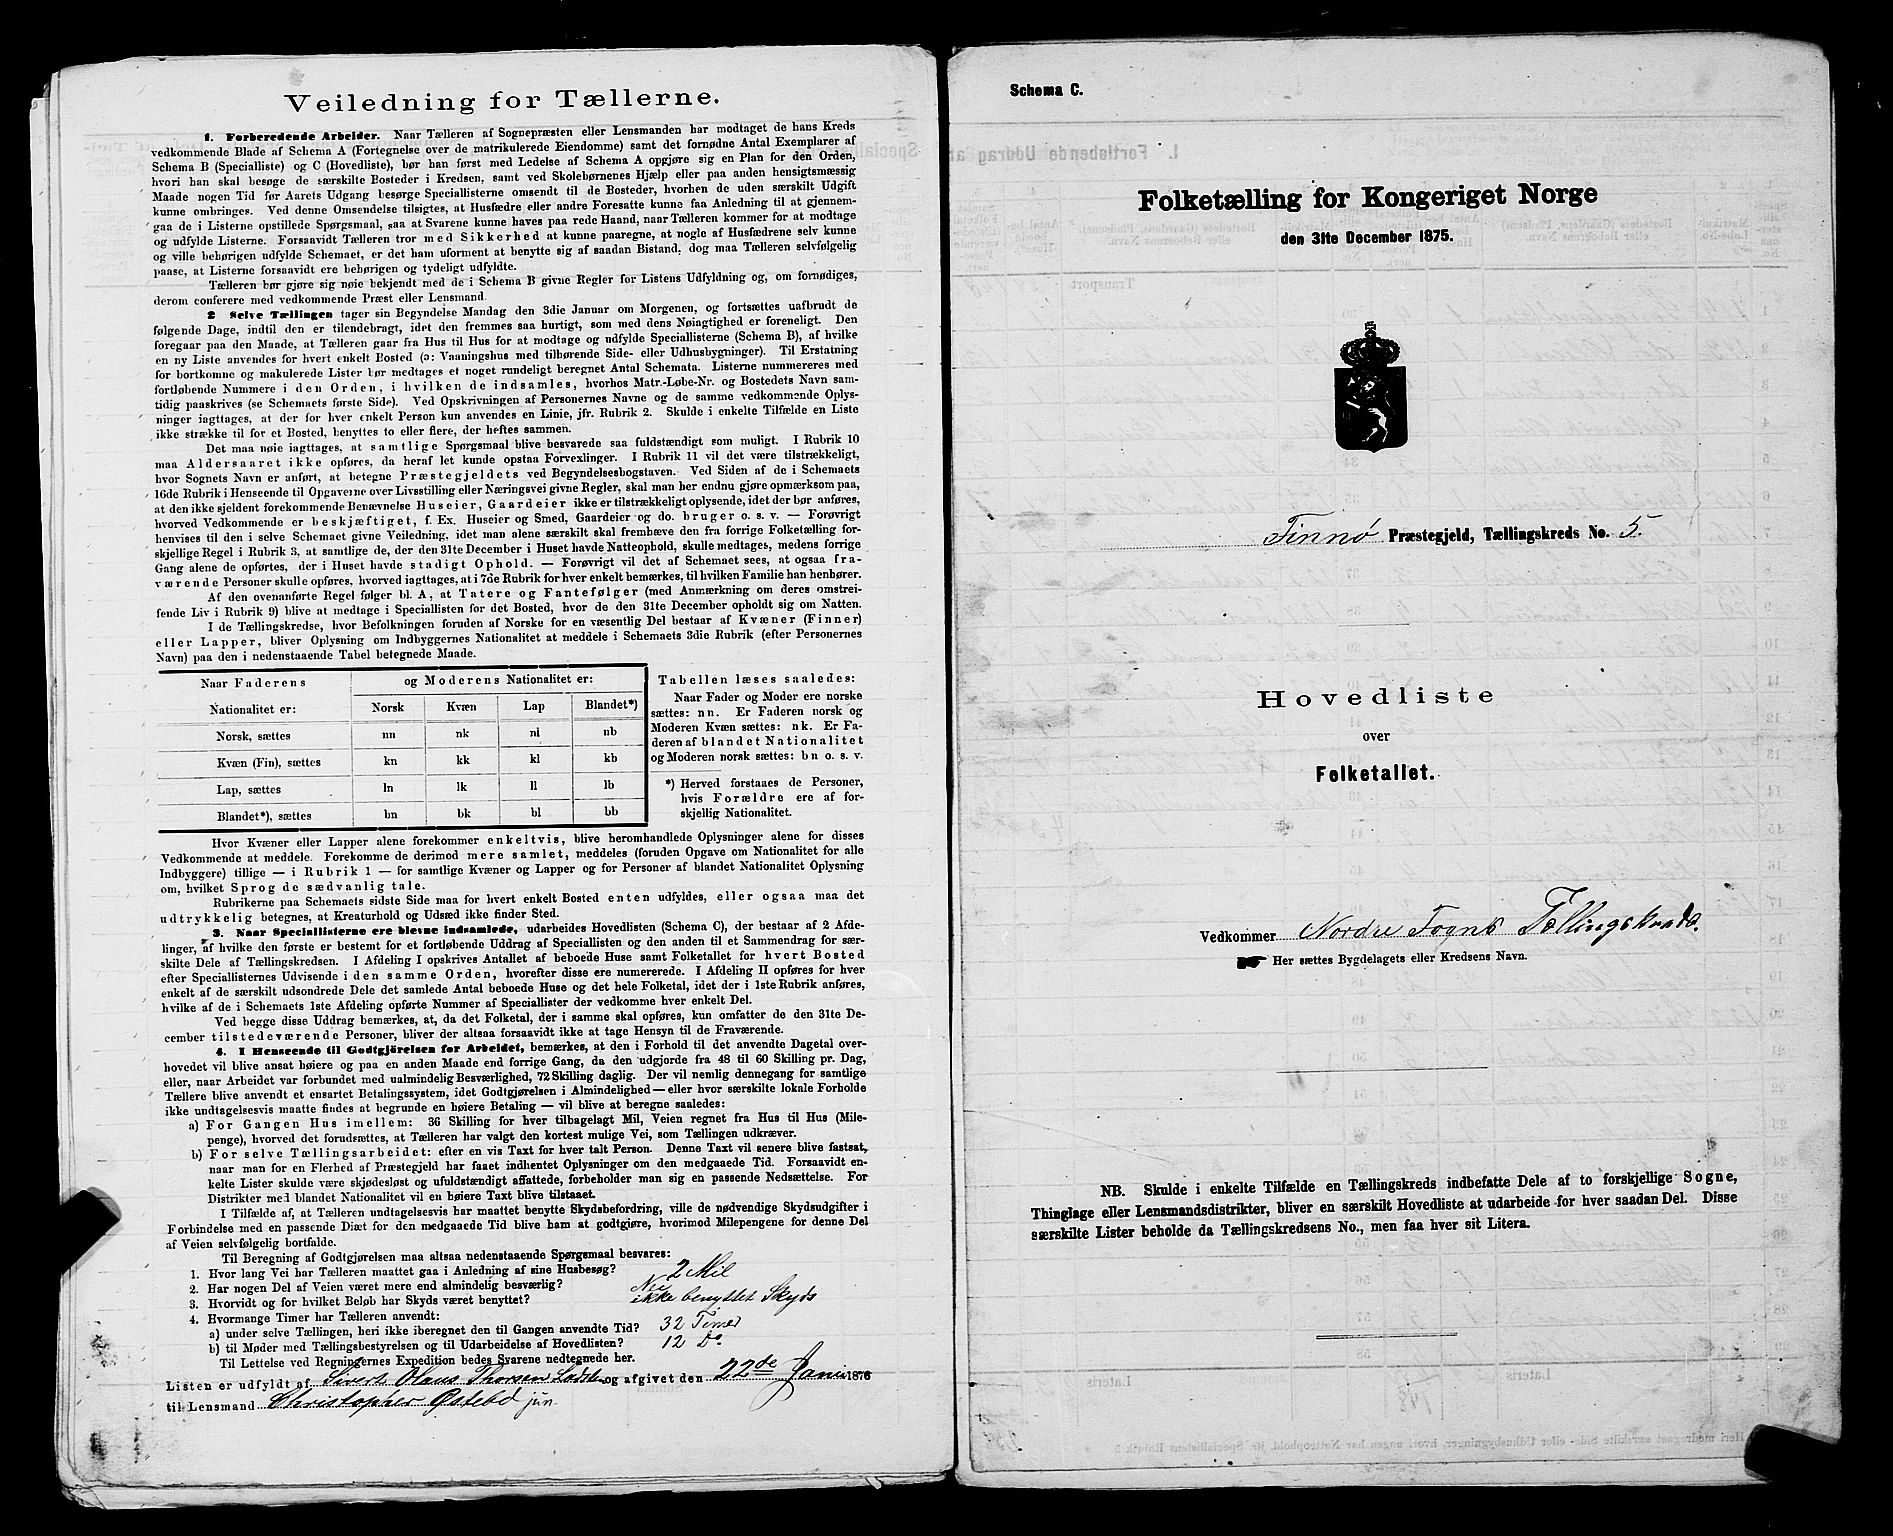 Veiledning for Tællerne.
1. Forberedende Arbeider. Naar Tælleren af Sognepræsten eller Lensmanden har modtaget de hans Kreds
vedkommende Blade af Schema A (Fortegnelse over de matrikulerede Eiendomme) samt det fornødne Antal Exemplarer af
Schema B (Specialliste) og C (Hovedliste), bør han først med Ledelse af Schema A opgjøre sig en Plan for den Orden,
hvori han skal besøge de særskilte Bosteder i Kredsen, samt ved Skolebørnenes Hjælp eller paa anden hensigtsmæssig
Maade nogen Tid før Aarets Udgang besørge Speciallisterne omsendt til de Bosteder, hvorhen de uden særskilt Udgift
kunne ombringes. Ved denne Omsendelse tilsigtes, at Husfædre eller andre Foresatte kunne faa Anledning til at gjennem-
gaa de i Listerne opstillede Spørgsmaal, saa at Svarene kunne haves paa rede Haand, naar Tælleren kommer for at modtage
og udfylde Listerne. Forsaavidt Tælleren tror med Sikkerhed at kunne paaregne, at nogle af Husfædrene selv kunne
og ville behørigen udfylde Schemaet, er det ham uforment at benytte sig af saadan Bistand, dog maa Tælleren selvfølgelig
paase, at Listerne forsaavidt ere behørigen og tydeligt udfyldte.
Tælleren bør gjøre sig nøie bekjendt med de i Schema B givne Regler for Listens Udfyldning og, om fornødiges,
derom conferere med vedkommende Præst eller Lensmand.
2. Selve Tællingen tager sin Begyndelse Mandag den 3die Januar om Morgenen, og fortsættes uafbrudt de
følgende Dage, indtil den er tilendebragt, idet den fremmes saa hurtigt, som med dens Nøiagtighed er foreneligt. Den
foregaar paa den Maade, at Tælleren gaar fra Hus til Hus for at modtage og udfylde Speciallisterne (Schema B), af hvilke
en ny Liste anvendes for hvert enkelt Bosted (ɔ: Vaaningshus med tilhørende Side- eller Udhusbygninger). Til Erstatning
for bortkomne og makulerede Lister bør medtages et noget rundeligt beregnet Antal Schemata. Listerne nummereres med
fortløbende Nummere i den Orden, i hvilken de indsamles, hvorhos Matr.-Løbe-Nr. og Bostedets Navn sam-
tidig paaskrives (se Schemaets første Side). Ved Opskrivningen af Personernes Navne og de samme vedkommende Oplys-
ninger iagttages, at der for hver enkelt Person kun anvendes en Linie, jfr. Rubrik 2. Skulde i enkelte Tilfælde en Liste
ikke strække til for et Bosted, benyttes to eller flere, der heftes sammen.
Det maa nøie iagttages, at samtlige Spørgsmaal blive besvarede saa fuldstændigt som muligt. I Rubrik 10
maa Aldersaaret ikke opføres, da heraf let kunde opstaa Forvexlinger. I Rubrik 11 vil det være tilstrækkeligt,
hvor Sognets Navn er anført, at betegne Præstegjeldets ved Begyndelsesbogstaven. Ved Siden af de i Schemaets
16de Rubrik i Henseende til Opgaverne over Livsstilling eller Næringsvei givne Regler, skal man her endnu gjøre opmærksom paa,
at den ikke sjeldent forekommende Benævnelse Huseier, Gaardeier ikke er tilstrækkeligt oplysende, idet der bør anføres,
hvorved Vedkommende er beskjæftiget, f. Ex. Huseier og Smed, Gaardeier og do. bruger o. s. v. — Forøvrigt
henvises til den i selve Schemaet givne Veiledning, idet man alene særskilt skal fremhæve den fra forrige Folketælling for-
skjellige Regel i Rubrik 3, at samtlige de, der den 31te December i Huset havde Natteophold, skulle medtages, medens forrige
Gang alene de opførtes, der i Huset havde stadigt Ophold. — Forøvrigt vil det af Schemaet sees, at ogsaa fra-
værende Personer skulle opføres, hvorved iagttages, at i 7de Rubrik for hver enkelt bemærkes, til hvilken Familie han henhører.
Af den ovenanførte Regel følger bl. A, at Tatere og Fantefølger (med Anmærkning om deres omstrei-
fende Liv i Rubrik 9) blive at medtage i Speciallisten for det Bosted, hvor de den 31te December opholdt sig om Natten.
I de Tællingskredse, hvor Befolkningen foruden af Norske for en væsentlig Del bestaar af Kvæner (Finner)
eller Lapper, bliver Oplysning om Indbyggernes Nationalitet at meddele i Schemaets 3die Rubrik (efter Personernes
Navn) paa den i nedenstaaende Tabel betegnede Maade.
Naar Faderens
Nationalitet er:
og Moderens Nationalitet er:
Norsk Kvæn Lap Blandet*)
Norsk, sættes nn nk nl nb
Kvæn (Fin), sættes kn kk kl kb
Lap, sættes ln lk ll lb
Blandet*), sættes bn bk bl bb
Tabellen læses saaledes:
Naar Fader og Moder ere norske
sættes: nn. Er Faderen norsk og
Moderen Kvæn sættes: nk. Er Fa-
deren af blandet Nationalitet
og Moderen norsk sættes: bn o. s. v.
*) Herved forstaaes de Personer,
hvis Forældre ere af for-
skjellig Nationalitet.
Hvor Kvæner eller Lapper alene forekommer enkeltvis, blive heromhandlede Oplysninger alene for disses
Vedkommende at meddele. Forekomme de derimod mere samlet, meddeles (foruden Opgave om Nationalitet for alle
Indbyggere) tillige — i Rubrik 1 — for samtlige Kvæner og Lapper og for Personer af blandet Nationalitet Oplysning
om, hvilket Sprog de sædvanlig tale.
Rubrikerne paa Schemaets sidste Side maa for hvert enkelt Bosted enten udfyldes, eller ogsaa maa det
udtrykkelig betegnes, at Kreaturhold og Udsæd ikke finder Sted.
3. Naar Speciallisterne ere blevne indsamlede, udarbeides Hovedlisten (Schema C), der bestaar af 2 Afde-
linger, af hvilke den første er bestemt for et fortløbende Uddrag af Speciallisten og den anden til et Sammendrag for sær-
skilte Dele af Tællingskredsen. I Afdeling I opskrives Antallet af beboede Huse samt Folketallet for hvert Bosted
efter Speciallisternes Udvisende i den samme Orden, hvorefter disse ere numererede. I Afdeling II opføres for hver
enkelt af de særskilt udsondrede Dele det samlede Antal beboede Huse og det hele Folketal, idet der i 1ste Rubrik anføres,
hvilke af de i Schemaets 1ste Afdeling opførte Nummer af Speciallister der vedkomme hver enkelt Del.
Ved begge disse Uddrag bemærkes, at, da det Folketal, der i samme skal opføres, kun omfatter de den 31te De-
cember tilstedeværende Personer, bliver der altsaa forsaavidt ikke at tage Hensyn til de Fraværende.
4. I Henseende til Godtgjørelsen for Arbeidet, bemærkes, at den i Forhold til det anvendte Dagetal over-
hovedet vil blive ansat høiere og paa en anden Maade end forrige Gang, da den udgjorde fra 48 til 60 Skilling pr. Dag,
eller, naar Arbeidet var forbundet med ualmindelig Besværlighed, 72 Skilling daglig. Der vil nemlig dennegang for samtlige
Tællere blive anvendt et ensartet Betalingssystem, idet Godtgjørelsen i Almindelighed — eller hvor særskilte lokale Forholde
ikke undtagelsesvis maatte findes at begrunde en høiere Betaling — vil blive at beregne saaledes:
a) For Gangen Hus imellem: 36 Skilling for hver tilbagelagt Mil, Veien regnet fra Hus til Hus (Mile-
penge), hvorved det forudsættes, at Tælleren har valgt den kortest mulige Vei, som Tællingen udkræver.
b) For selve Tællingsarbeidet: efter en vis Taxt for hver talt Person. Denne Taxt vil senere blive fastsat,
naar man for en Flerhed af Præstegjeld har faaet indhentet Oplysninger om den medgaaede Tid. Forsaavidt en-
kelte Lister skulde være skjødesløst og ufuldstændigt affattede, forbeholder man sig en passende Nedsættelse. For
Distrikter med blandet Nationalitet vil en høiere Taxt blive tilstaaet.
I Tilfælde af, at Tælleren undtagelsesvis har maattet benytte Skydsbefordring, ville de nødvendige Skydsudgifter i
Forbindelse med en passende Diæt for den medgaaede Tid blive ham at godtgjøre, hvorimod Milepengene for denne Del
af Veien selvfølgelig bortfalde.
Til Beregning af Godtgjørelsen maa altsaa nedenstaaende Spørgsmaal besvares:
1. Hvor lang Vei har Tælleren maattet gaa i Anledning af sine Husbesøg? 2 Mil
2. Har nogen Del af Veien været mere end almindelig besværlig? Nei
3. Hvorvidt og for hvilket Beløb har Skyds været benyttet? ikke benyttet Skyds
4. Hvormange Timer har Tælleren anvendt:
a) under selve Tællingen, heri ikke iberegnet den til Gangen anvendte Tid? 32 Timer
b) til Møder med Tællingsbestyrelsen og til Udarbeidelse af Hovedlisten? 12 Do
Til Lettelse ved Regningernes Expedition bedes Svarene nedtegnede her.
Listen er udfyldt af Sivert Olaus Thorsen og afgivet den 22de Janu 1876
til Lensmand Christopher Østebø jun.
Schema C.
Folketælling for Kongeriget Norge
den 31te December 1875.
Finnø Præstegjeld, Tællingskreds No. 5.
Hovedliste
over
Folketallet.
Vedkommer Nordre Fogns Tællingskreds.
Her sættes Bygdelagets eller Kredsens Navn.
NB. Skulde i enkelte Tilfælde en Tællingskreds indbefatte Dele af to forskjellige Sogne,
Thinglage eller Lensmandsdistrikter, bliver en særskilt Hovedliste at udarbeide for hver saadan Del. Disse
særskilte Lister beholde da Tællingskredsens No., men faa hver sit Litera.